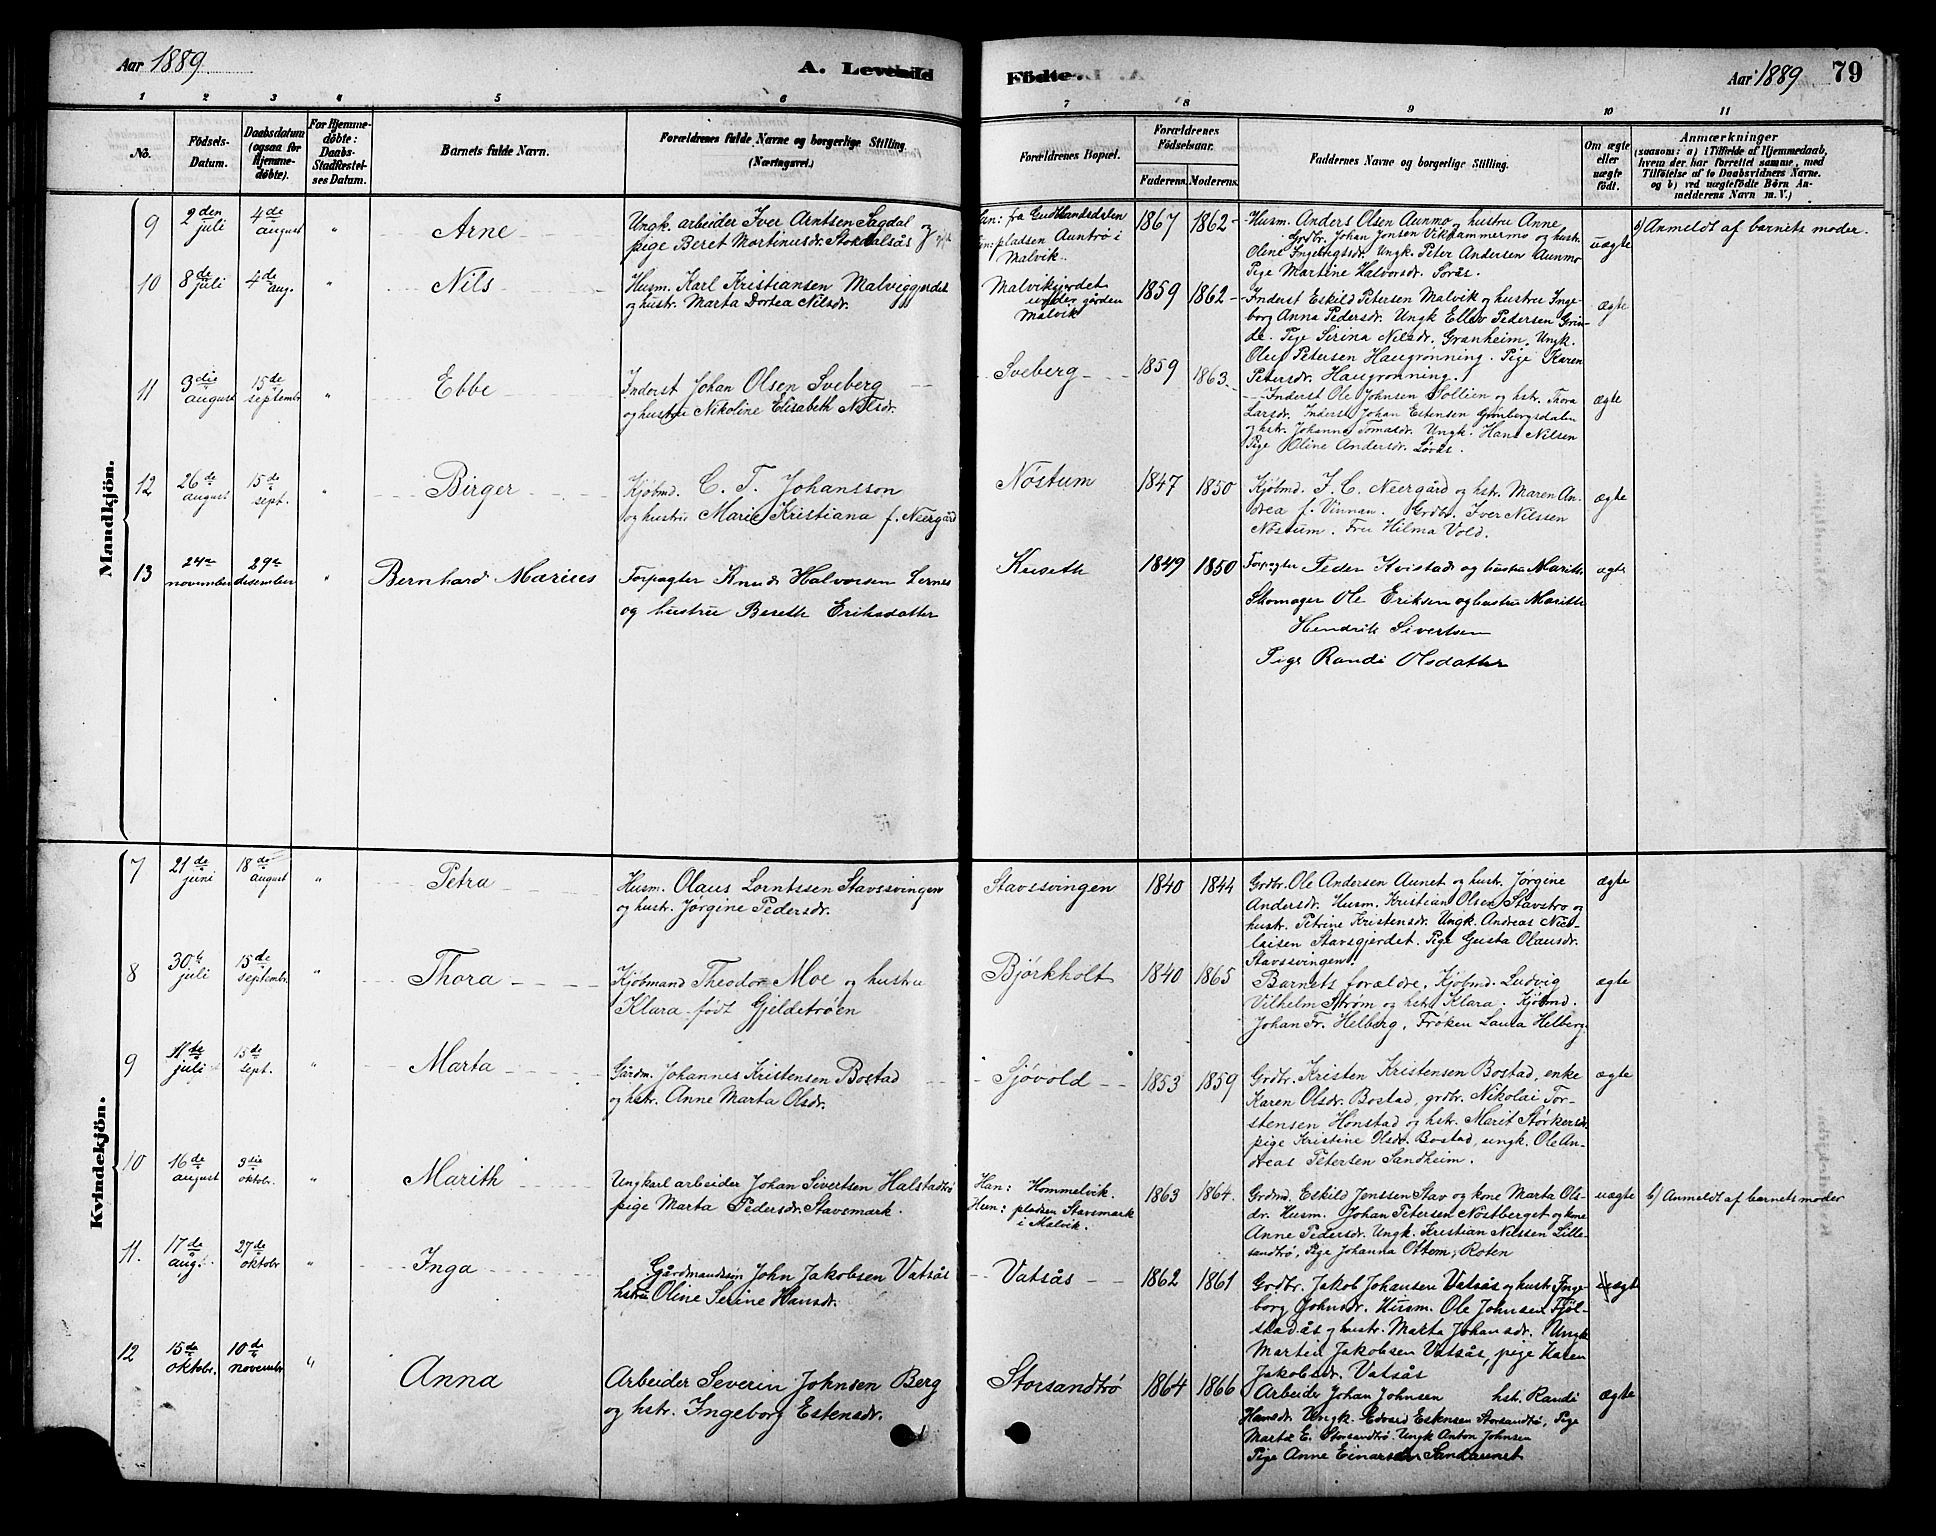 Aar 1889
A. Levende
Födte.
Aar 1889 79
1 2 3 4 5 6 7 8 9 10 11
No.
Födsels-
Datum.
Daabsdatum
(ogsaa for
Hjemme-
døbte).
For Hjemme-
døbte:
Daabs-
Stadfæstel-
ses Datum.
Barnets fulde Navn.
Forældrenes fulde Navne og borgerlige Stilling.
(Næringsvei.)
Forældrenes Bopæl.
Forældrenes
Födselsaar.
Faderens. Moderens.
Faddernes Navne og borgerlige Stilling.
Om ægte
eller
uægte
født.
Anmærkninger
(saasom: a) i Tilfælde af Hjemmedaab,
hvem der har forrettet samme, med
Tilföielse af to Daabsvidners Navne.
og b) ved uægtefödte Börn An-
melderens Navn m. V.)
Mandkjön.
9 2den juli 4de august " Arne
Ungk. arbeider Iver Arntsen Sagdal og
pige Beret Martinusdr. Stordalsås
Han: fra Gudbrandsdalen
Hun: pladsen Auntrø i
Malvik.
1867 1862
Husm. Anders Olsen Aunmo og hustru Anne
Grdbr. Johan Jonsen Vikhammermo og hustr.
Oline Ingebrigtsdr. Ungk. Peter Andersen Aunmo
Pige Martine Halvorsdr. Sorås.
uægte
b) Anmeldt af barnets moder.
10 8de juli 4de aug. " Nils
Husm. Karl Kristiansen Malvikgjerdet
og hustr. Marta Dortea Nilsdr.
Malvikgjerdet
under gården
Malvik
1859 1862
Inderst Eskild Petersen Malvik og hustru Inge-
borg Anna Pedersdr. Ungk Ellev Petersen Grin-
de. Pige Sirina Nilsdr. Granheim, Ungk.
Oluf Petersen Haugrønning. Pige Karen
Petersdr. Haugrønning.
ægte
11 3die august 15de septembr " Ebbe
Inderst Johan Olsen Sveberg
og hustru Nikoline Elisabeth Nilsdr.
Sveberg
1859 1863
Inderst Ole Johnsen Sollien og hstr. Thora
Larsdr. Inderst Johan Estensen Grønbergsdalen
og hstr. Johanna Tomasdr. Ungk. Hans Nilsen
Pige Oline Andersdr. Sorås.
ægte
12 26de august 15de sept. " Birger
Kjøbmd. C. T. Johansson
og hustru Marie Kristiana f. Neergård
Nöstum
1847 1850
Kjøbmd. F. C. Neergård og hstr. Maren An-
drea f. Vinnan. Grdbr. Iver Nilssen
Nöstum. Fru Hilma Vold.
ægte
13 24de november 29de desember " Bernhard Marius
Forpagter Knud Halvorsen Lernes
og hustru Bereth Eriksdatter
Kuseth
1849 1850
Forpagter Peder Kvistad og hustru Marith
Skomager Ole Eriksen og hustru Marith
Hendrik Sivertsen
Pige Randi Olsdatter
ægte
Kvindekjön.
7 21de juni 18de august " Petra
Husm. Olaus Lorntssen Stavssvingen
og hustr. Jørgine Pedersdr.
Stavssvingen
1840 1844
Grdbr. Ole Andersen Aunet og hustr. Jørgine
Andersdr. Husm. Kristian Olsen Stavstrø og
hustr. Petrine Kristensdr. Ungk. Andreas Nico-
laisen Stavsgjerdet. Pige Gusta Olausdr.
Stavssvingen.
ægte
8 30te juli 15de septembr. " Thora
Kjøbmand Theodor Moe og hustru
Klara født Gjeldetrøen
Bjørkholt
1840 1865
Barnets forældre, Kjøbmd. Ludvig
Vilhelm Strøm og hstr. Klara. Kjøbmd.
Johan Fr. Helberg, Frøken Laura Helberg
ægte
9 11te juli 15de sept. " Marta
Gårdm. Johannes Kristensen Bostad
og hstr. Anne Marta Olsdr.
Sjøvold
1853 1859
Grdbr. Kristen Kristensen Bostad, enke
Karen Olsdr. Bostad, grdbr. Nikolai Tor-
stensen Honstad og hstr. Marit Størkersdr.
pige Kristine Olsdr. Bostad, ungk. Ole An-
dreas Petersen Sandheim.
ægte
10 16de august 3die oktobr. " Marith
Ungkarl arbeider Johan Sivertsen Halstadtrø
pige Marta Pedersdr. Stavsmark.
Han: Hommelvik.
Hun: pladsen Stavsmark
i Malvik.
1863 1864.
Grdmd. Eskild Jenssen Stav og kone Marta Ols-
dr. Husm. Johan Petersen Nöstberget og kone
Anne Pedersdr. Ungk. Kristian Nilssen Lille-
sandtrø, Pige Johanna Ottem, Roten
uægte
b) Anmeldt af barnets moder
11. 17de aug. 27de oktobr " Inga
Gårdmandssøn John Jakobsen Vatsås
hstru Oline Serine Hansdr.
Vatsås
1862 1861
Grdbr. Jakob Johansen Vatsås og hustr. Inge-
borg Johnsdr. Husm. Ole Johnsen Fjöl-
stadås og hustr. Marta Johansdr. Ungk
Martin Jakobsen Vatsås, pige Karen
Jakobsdr. Vatsås
ægte
12 15de oktobr. 10de novembr " Anna
Arbeider Severin Johnsen Berg
og hstr. Ingeborg Estensdr.
Storsandtrø
1864 1866
Arbeider Johan Johnsen hst. Randi
Hansdr. Ungk. Edvard Estensen Storsandtrø, Pige
Marta E. Storsandtrø. Ungk Anton Johnsen
Pige Anne Einarsdr Sandaunet
ægte